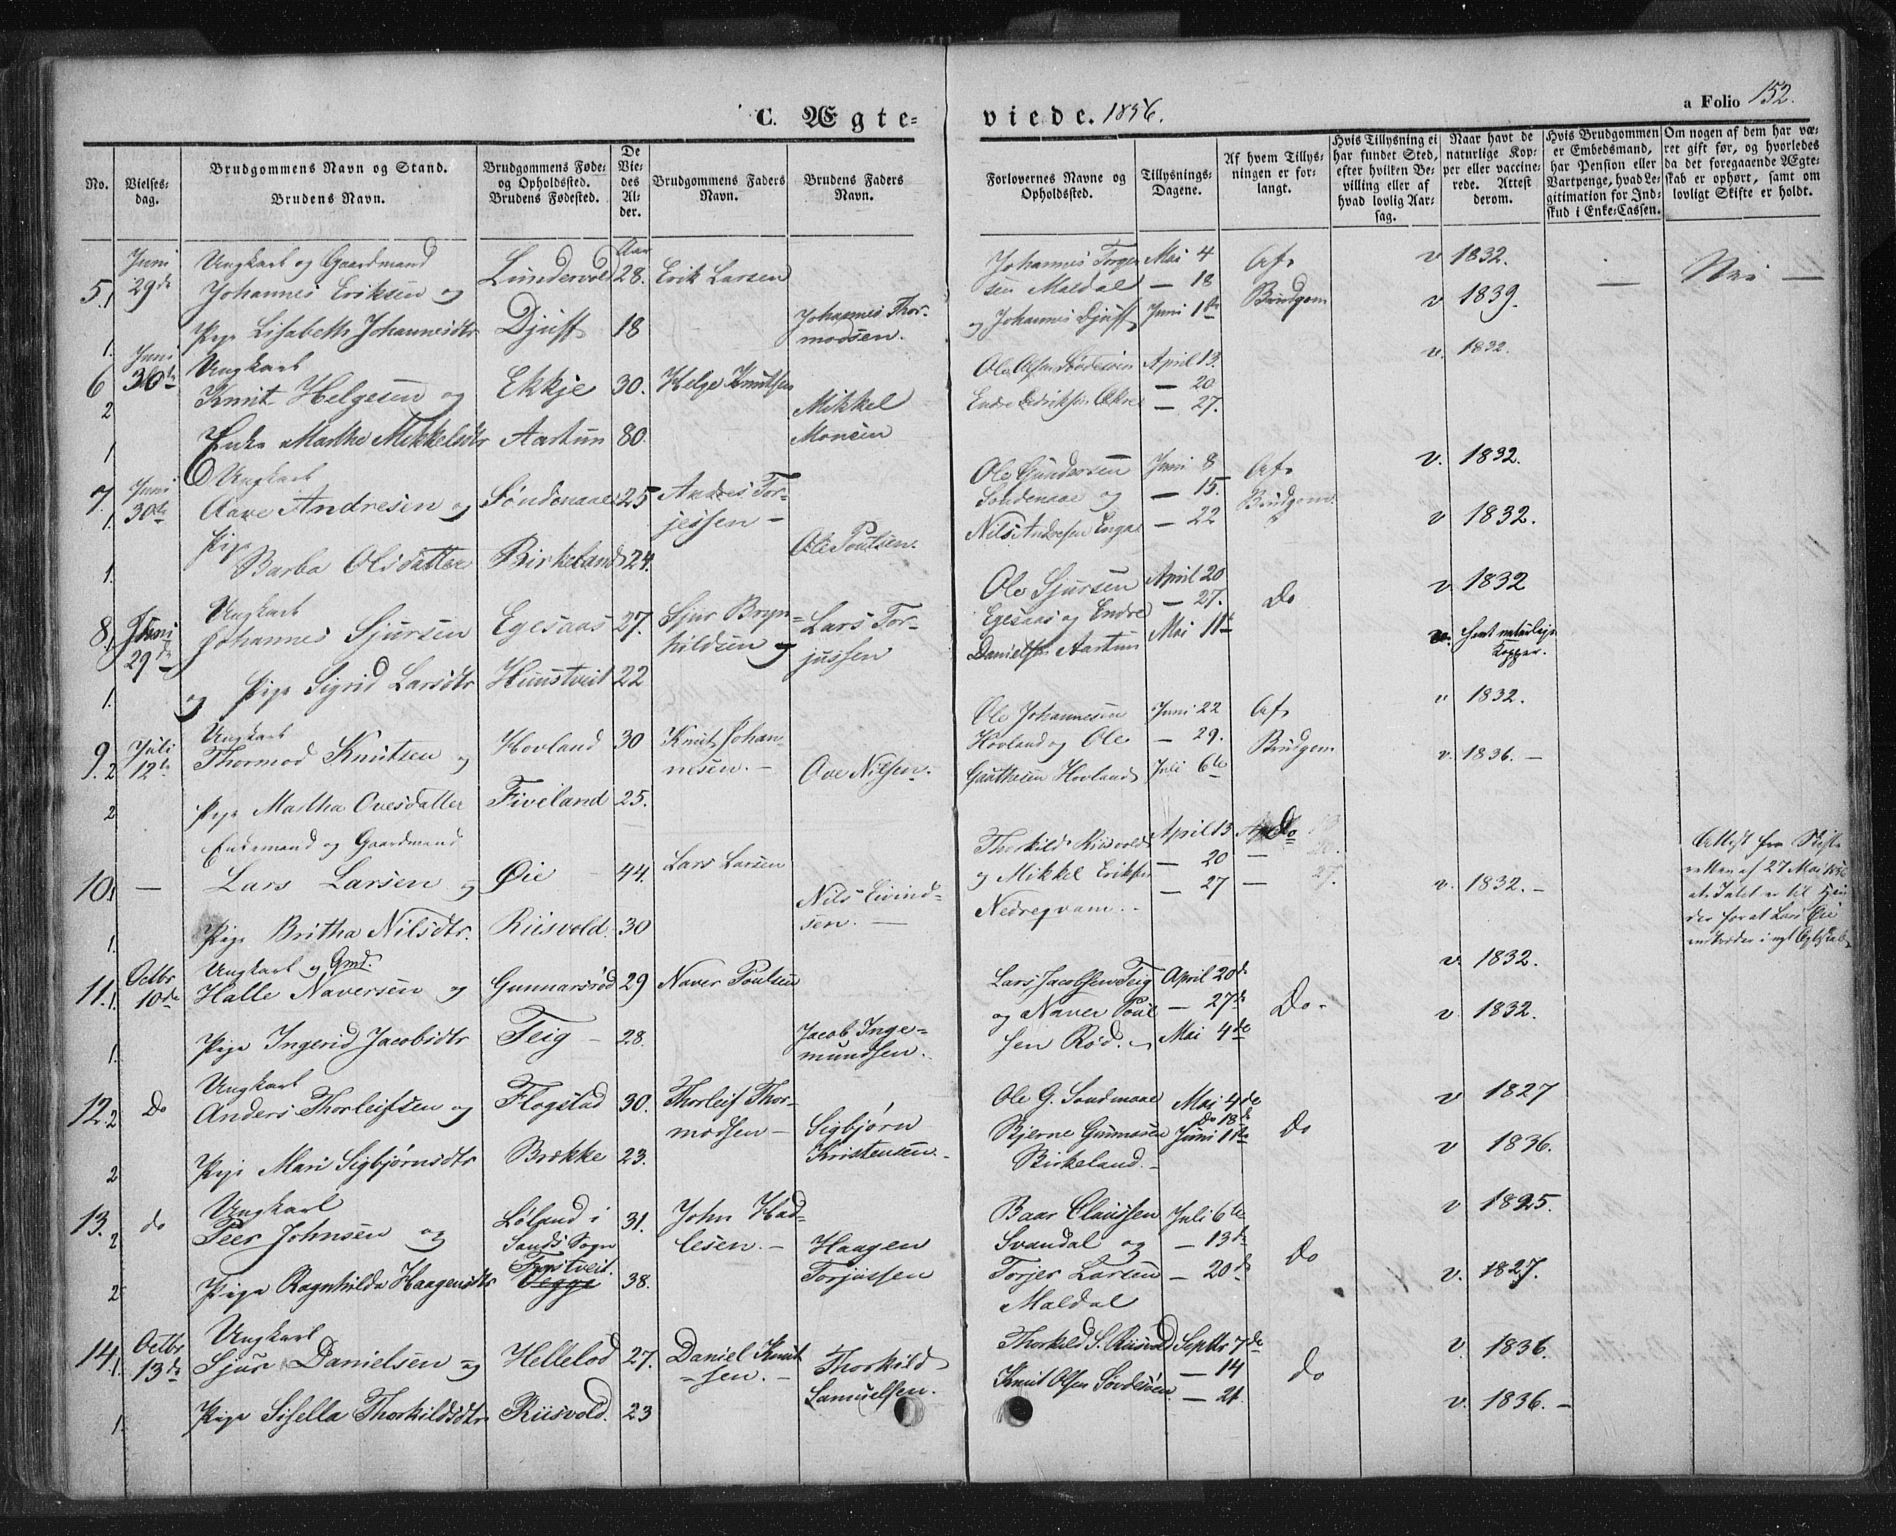 C. Ægte-viede. 1856.
a Folio 152.
No.
Vielses-dag.
Brudgommens Navn og Stand.
Brudens Navn.
Brudgommens Føde- og Opholdssted.
Brudens Fødested.
De Viedes Alder.
Brudgommens Faders Navn.
Brudens Faders Navn.
Forlovernes Navne og Opholdssted.
Tillysnings-Dagene.
Af hvem Tillysningen er forlangt.
Hvis Tillysning ei har fundet Sted, efter hvilken Bevilling eller af hvad lovlig Aarsag.
Naar havt de naturlige Kopper eller vaccinerede. Attest derom.
Hvis Brudgommen er Embedsmand, har Pension eller Vartpenge, hvad Legitimation for Indskud i Enke-Cassen.
Om nogen af dem har været gift før, og hvorledes da det foregaaende Ægteskab er ophørt, samt om lovligt Skifte er holdt.
Aar
5. 1 Juni 29de Ungkarl og Gaardmand Johannes Eriksen og Lundervold 28. Erik Larsen
1. Pige Lisabeth Johannesdtr Djuff 18 Johannes Thormodsen.
Johannes Torgersen Maldal og Johannes Djuff Mai 4 — 18 Juni 1ste Af Brudgom v 1832. v 1839. — Nei —
6 2 Juni 30te Ungkarl Knut Helgesen og Ekkje 30. Helge Knutsen
1 Enke Martha Mikkelsdtr Aartun 80. Mikkel Monsen
Ole April 13. — 20 — 27. v. 1832.
7. 1. Juni 30te Ungkarl Aave Andresen og Søndenaae 25 Andres Torjessen —
1. Pige Barba Olsdatter Birkeland 24. Ole Poulsen.
Ole Gundersen Sondenaae og Nils Andresen Juni 8 — 15. — 22 Af Brudgom. v. 1832. v 1832.
8. 1 Juni 29de Ungkarl Johannes Sjursen Egesaas 27. Sjur Brynhildsen og
1. og Pige Sigrid Larsdtr Hunstveit 22 Lars Torjussen
Ole Sjursen Egesaas og Endre Danielsen Aartun April 20 — 27. Mai 11te Do v 1832 v. havt naturlige Kopper.
9. 2 Juli 12te Ungkarl Thormod Knutsen og Hovland 30 Knut Johannesen. —
2 Pige Martha Ovesdatter Fiveland 25. Ove Nilsen.
Ole Johannesen Hovland og Ole Gautheim Hovland Juni 22 — 29. Juli 6te Af Brudgom v 1832. v. 1836. —
10. 1 — Enkemand og Gaardmand Lars Larsen og Øie 44. Lars Larsen
1. Pige Britha Nilsdtr. Riisvold. 30 Nils Eivindsen. —
Thorkild Riisvold og Mikkel Eriksen Nedreqvam. April 13 — 20 — 27 Do v. 1832. —
Attest fra Skifteretten af 27 Mai 1856 at Intet er til Hinder for at Lars Øie indtræder i nyt Ægteskab
11. 1. Octbr 10de Ungkarl og Gmd. Halle Naversen og Gunnarsrød 29 Naver Poulsen
1. Pige Ingerid Jacobsdtr Teig — 28. Jacob Ingemundsen.
Lars Jacobsen Teig og Naver Poulsen Rød. April 20de — 27de Mai 4de Do. v. 1832. v 1832.
12. 2 Do Ungkarl Anders Thorleifsen og Flogstad 30. Thorleif Thormodsen —
2 Pige Mari Sigbjørnsdtr Brække 23. Sigbjørn Kristensen.
Ole G. Sondenaae Bjerne Gunnesen Birkeland. — Mai 4de Do 18de Juni 1ste Do v 1827 v 1836.
13. 2 do Ungkarl Peer Johnsen og Løland i Sands Sogn 31. John Hadlesen. —
2 Pige Ragnhilda Haagensdtr Tveitveit. Vegge 38. Haagen Torjussen
Baar Claussen Svandal og Torjer Larsen Maldal Juli 6te — 13de — 20de Do v 1825. v. 1827.
14. 1. Octbr 13de Ungkarl Sjur Danielsen og Hellelod 27. Daniel Knutsen. —
1. Pige Sisella Thorkildsdtr Riisvold. 23 Thorkild Samuelsen.
Thorkild S. Riisvold Knut Olsen Søvdesøen. Septbr 7de — 14 — 21. do v. 1836. v. 1836. —